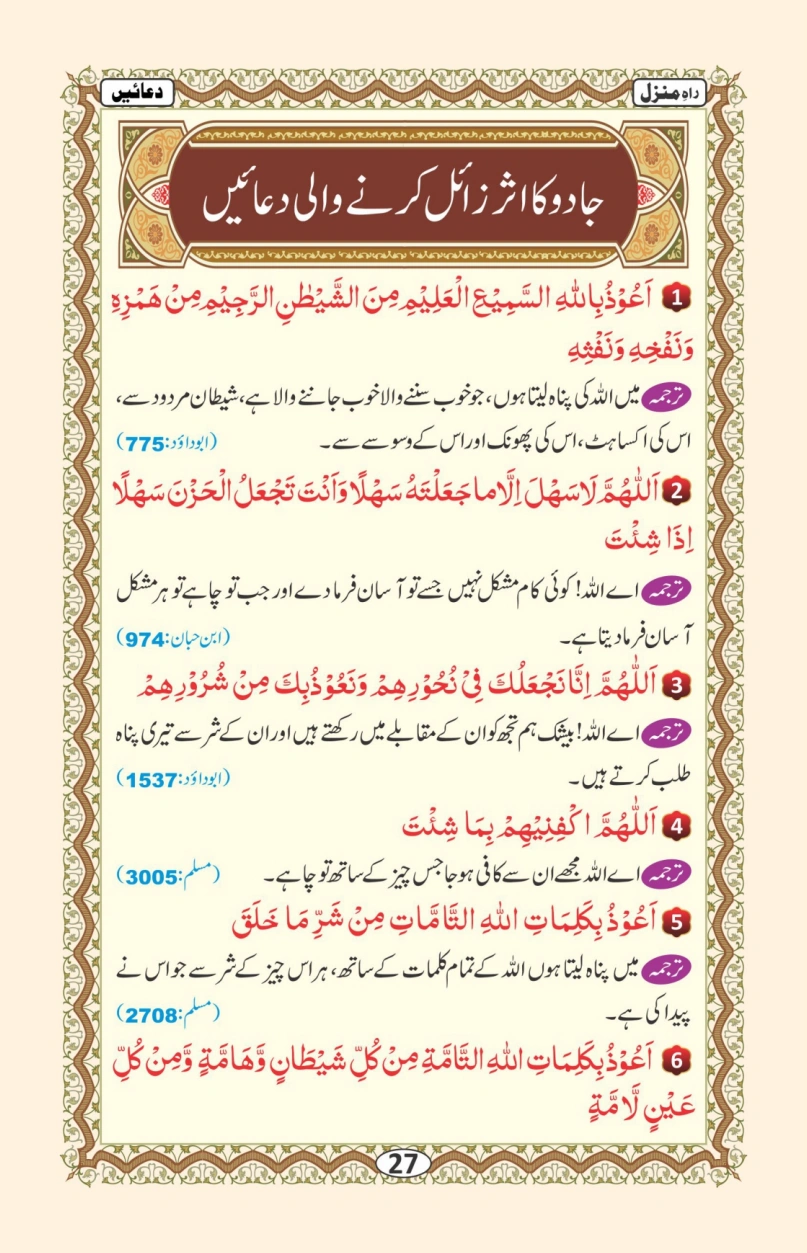 راہِ منزل
دعائیں
جادو کا اثر زائل کرنے والی دعائیں
1 اَعُوْذُ بِاللهِ السَّمِيْعِ الْعَلِيْمِ مِنَ الشَّيْطٰنِ الرَّجِيْمِ مِنْ هَمْزِهٖ
وَنَفْخِهٖ وَنَفْثِهٖ
ترجمہ میں اللہ کی پناہ لیتا ہوں، جو خوب سننے والا خوب جاننے والا ہے، شیطان مردود سے،
اس کی اکساہٹ، اس کی پھونک اور اس کے وسوسے سے۔ (ابوداؤد:775)
2 اَللّٰهُمَّ لَا سَهْلَ اِلَّا ما جَعَلْتَهٗ سَهْلًا وَاَنْتَ تَجْعَلُ الْحَزْنَ سَهْلًا
اِذَا شِئْتَ
ترجمہ اے اللہ! کوئی کام مشکل نہیں جسے تو آسان فرما دے اور جب تو چاہے تو ہر مشکل
آسان فرما دیتا ہے۔ (ابن حبان:974)
3 اَللّٰهُمَّ اِنَّا نَجْعَلُكَ فِيْ نُحُوْرِهِمْ وَنَعُوْذُ بِكَ مِنْ شُرُوْرِهِمْ
ترجمہ اے اللہ! بیشک ہم تجھ کو ان کے مقابلے میں رکھتے ہیں اور ان کے شر سے تیری پناہ
طلب کرتے ہیں۔ (ابوداؤد:1537)
4 اَللّٰهُمَّ اكْفِنِيْهِمْ بِمَا شِئْتَ
ترجمہ اے اللہ مجھے ان سے کافی ہو جا جس چیز کے ساتھ تو چاہے۔ (مسلم:3005)
5 اَعُوْذُ بِكَلِمَاتِ اللهِ التَّامَّاتِ مِنْ شَرِّ مَا خَلَقَ
ترجمہ میں پناہ لیتا ہوں اللہ کے تمام کلمات کے ساتھ، ہر اس چیز کے شر سے جو اس نے
پیدا کی ہے۔ (مسلم:2708)
6 اَعُوْذُ بِكَلِمَاتِ اللهِ التَّامَّةِ مِنْ كُلِّ شَيْطَانٍ وَّهَامَّةٍ وَّمِنْ كُلِّ
عَيْنٍ لَّامَّةٍ
27